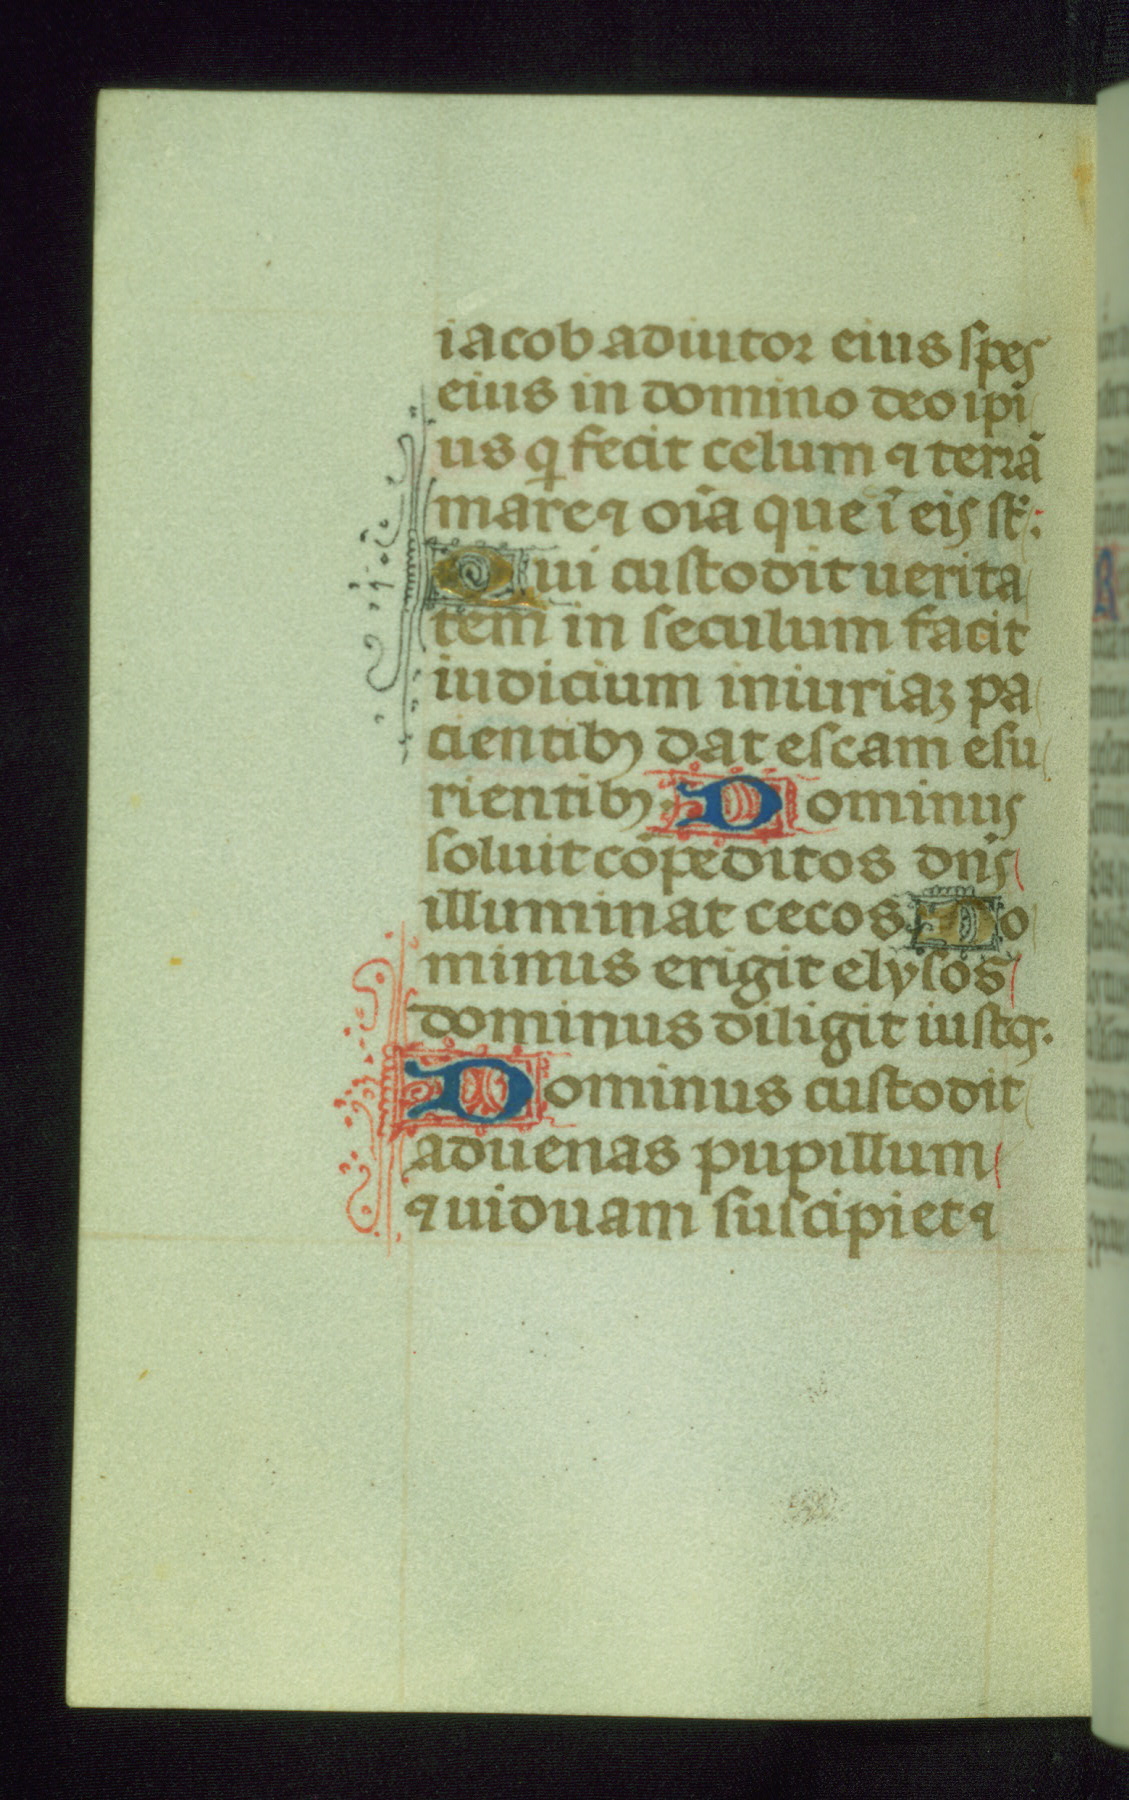 iacob adiutor eius spes
eius in domino deo ipi
us q̇ fecit celum ⁊ terrā
mare ⁊ oīa que ī eis st̄:
Qui custodit uerita
tem in seculum facit
iudicium iniuriaꝫ pa
cientibꝫ dat escam esu
rientibꝫ. Dominus
soluit cōpeditos dn̄s
illuminat cecos. Do
minus erigit elysos
dominus diligit iustos.
Dominus custodit
aduenas pupillum
⁊ uiduam suscipiet ⁊